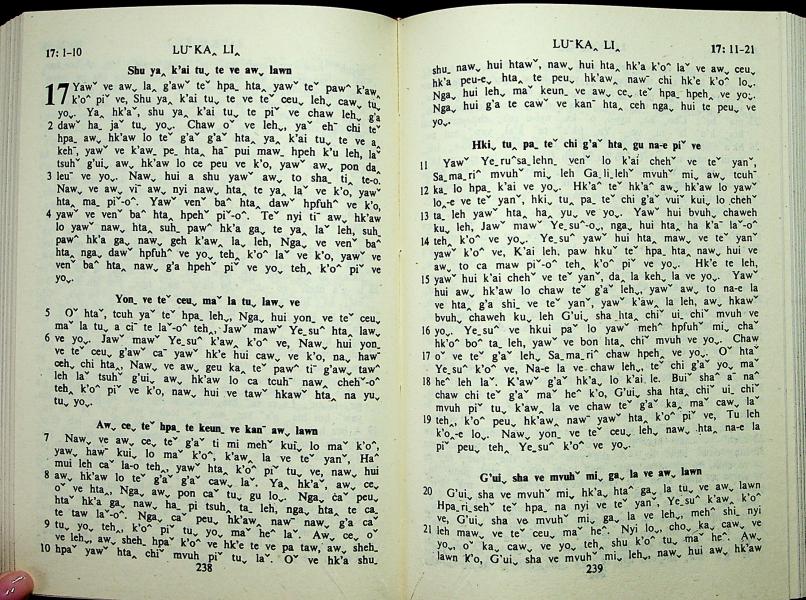 17: 1-10 LUˉ KA‸ LI‸
Shu ya‸ k'ai tu˯ te ve aw˯ lawn
17 Yawˇ ve aw˯ la‸ g'awˇ teˇ hpa‸ hta‸ yawˇ teˇ pawˆ k'aw‸
k'oˆ piˇ ve, Shu ya‸ k'ai tu˯ te ve teˇ ceu˯ leh˯ caw˯ tu˯
yo˯. Ya‸ hk'aˇ, shu ya‸ k'ai tu˯ te piˇ ve chaw leh˯ g'a
2 dawˇ ha‸ jaˇ tu˯ yo˯. Chaw oˇ ve leh˯, yaˇ ehˉ chi teˇ
hpa˯ aw˯ hk'aw lo teˇ g'aˇ g'aˇ hta‸ ya‸ k'ai tu˯ te ve a˯
kehˇ, yawˇ ve k'aw˯ pe˯ hta‸ haˇ pui maw˯ hpeh k'u leh, laˇ
tsuhˇ g'ui˯ aw˯ hk'aw lo ce peu ve k'o, yawˇ aw˯ pon da˯
3 leuˉ ve yo˯. Naw˯ hui a shu yawˇ aw˯ to sha˯ ti˯ te-o.
Naw˯ ve aw˯ viˉ aw˯ nyi naw˯ hta‸ te ya‸ laˇ ve k'o, yawˇ
hta‸ ma˯ piˇ-oˆ. Yawˇ venˇ baˆ hta‸ dawˇ hpfuhˆ ve k'o,
4 yawˇ ve venˇ baˆ hta‸ hpehˇ piˇ-oˆ. Teˇ nyi tiˉ aw˯ hk'aw
lo yawˇ naw˯ hta‸ suh˯ pawˆ hk'a ga˯ te ya‸ laˇ leh, suh˯
pawˆ hk'a ga˯ naw˯ geh k'aw˯ la˯ leh, Nga˯ ve venˇ baˆ
hta‸ nga˯ dawˇ hpfuhˆ ve yo˯ teh‸ k'oˆ laˇ ve k'o, yawˇ ve
venˇ baˆ hta‸ naw˯ g'a hpehˇ piˇ ve yo˯ teh‸ k'oˆ piˇ ve
yo˯.
Yon˯ ve teˇ ceu˯ maˇ la tu˯ law˯ ve
5 Oˇ htaˇ, tcuh yaˇ teˇ hpa‸ leh˯, Nga˯ hui yon˯ ve teˇ ceu˯
maˇ la tu˯ a ciˉ te laˇ-oˆ teh‸, Jawˇ mawˇ Ye˯suˆ hta‸ law˯
6 ve yo˯. Jawˇ mawˇ Ye˯suˆ k'aw‸ k'oˆ ve, Naw˯ hui yon˯
ve teˇ ceu˯ g'awˇ caˇ yawˇ hk'e hui caw˯ ve k'o, na˯ hawˉ
ceh˯ chi hta‸, Naw˯ ve aw˯ geu ka‸ teˇ pawˆ tiˉ g'aw˯ tawˆ
leh laˇ tsuhˇ g'ui˯ aw˯ hk'aw lo ca tcuhˉ naw˯ chehˇ-oˆ
teh‸ k'oˆ piˇ ve k'o, naw˯ hui ve tawˇ hkawˇ hta‸ na yu˯
tu˯ yo˯.
Aw˯ ce˯ teˇ hpa‸ te keun˯ ve kanˉ aw˯ lawn
7 Naw˯ ve aw˯ ce˯ teˇ g'aˇ ti mi mehˇ kui˯ lo maˇ k'oˆ,
yaw˯ hawˉ kui˯ lo maˇ k'oˆ, k'aw˯ la ve teˇ yanˇ, Haˆ
mui leh caˇ la-o teh‸, yawˇ hta‸ k'oˆ piˇ tu˯ ve, naw˯ hui
8 aw˯ hk'aw lo teˇ g'aˇ g'aˇ caw˯ laˇ. Ya‸ hk'aˇ, aw˯ ce˯
oˇ ve hta‸, Nga˯ aw˯ pon caˇ tu˯ gu lo˯. Nga˯ caˇ peu˯
htaˇ hk'a ga˯ naw˯ ha˯ pi tsuh‸ ta˯ leh, nga˯ hta‸ te ca˯
te taw laˇ-oˆ. Nga˯ caˇ peu˯ hk'aw˯ nawˉ naw˯ g'a caˇ
9 tu˯ yo˯ teh‸ k'oˆ piˇ tu˯ yo˯ maˇ heˆ laˇ. Aw˯ ce˯ oˇ
ve leh˯, aw˯ sheh˯ hpaˇ k'oˆ ve hk'e te ve pa taw, aw˯ sheh˯
10 hpaˇ yawˇ hta‸ chiˇ mvuh piˇ tu˯ laˇ. Oˇ ve hk'a shu˯
238
LUˉ KA‸ LI‸ 17: 11-21
shu˯ naw˯ hui htawˇ, naw˯ hui hta‸ hk'a k'oˆ laˇ ve aw˯ ceu˯
hk'a peu-e˯ hta‸ te peu˯ hk'aw˯ nawˉ chi hk'e k'oˆ lo˯.
Nga˯ hui leh˯ maˇ keun˯ ve aw˯ ce˯ teˇ hpa˯ hpeh˯ ve yo˯.
Nga˯ hui g'a te cawˇ ve kanˉ hta‸ ceh nga˯ hui te peu˯ ve
yo˯.
Hki˯ tu˯ pa˯ teˇ chi g'aˇ hta‸ gu na-e piˇ ve
11 Yawˇ Ye˯ruˆsa˯lehn˯ venˇ lo k'ai chehˇ ve teˇ yanˇ,
Sa˯ma˯riˆ mvuhˇ mi˯ leh Ga˯li˯lehˇ mvuhˇ mi˯ aw˯ tcuhˉ
12 ka˯ lo hpa˯ k'ai ve yo˯. Hk'aˆ teˇ hk'aˆ aw˯ hk'aw lo yawˇ
lo˯-e ve teˇ yanˇ, hki˯ tu˯ pa˯ teˇ chi g'aˇ vuiˇ kui˯ lo cheh
13 ta˯ leh yawˇ hta‸ ha˯ yu˯ ve yo˯. Yawˇ hui bvuh˯ chaweh
ku˯ leh, Jawˇ mawˇ Ye˯suˆ-o˯, nga˯ hui hta‸ ha k'aˉ laˇ-oˆ
14 teh‸ k'oˆ ve yo˯. Ye˯suˆ yawˇ hui hta‸ maw˯ ve teˇ yanˇ
yawˇ k'oˆ ve, K'ai leh, paw hkuˇ teˇ hpa‸ hta‸ naw˯ hui ve
aw˯ to ca maw piˇ-oˆ teh‸ k'oˆ piˇ ve yo˯. Hk'e te leh,
15 yawˇ hui k'ai chehˇ ve teˇ yanˇ, da˯ la keh˯ la ve yo˯. Yawˇ
hui aw˯ hk'aw lo chaw teˇ g'aˇ leh˯, yawˇ aw˯ to na-e la
ve hta‸ g'a shi˯ ve teˇ yanˇ, yawˇ k'aw˯ la leh, aw˯ hkawˇ
bvuh˯ chaweh ku leh G'ui˯ sha˯hta‸ chiˇ ui˯ chiˇ mvuh ve
16 yo˯. Ye˯suˆ ve hkui paˇ lo yawˇ mehˆ hpfuhˇ mi˯ chaˇ
hk'oˆ boˆ ta˯ leh, yawˇ ve bon hta‸ chiˇ mvuh ve yo˯. Chaw
17 oˇ ve teˇ g'aˇ leh˯ Sa˯ma˯riˆ chaw hpeh˯ ve yo˯. Oˇ htaˇ
Ye˯suˆ k'oˆ ve, Na-e la ve chaw leh˯, teˇ chi g'aˇ yo˯ maˇ
18 heˆ leh laˇ. K'awˇ g'aˇ hk'a˯ lo k'ai˯le. Buiˇ shaˆ aˉ naˆ
chaw chi teˇ g'aˇ maˇ heˆ k'o, G'ui˯ sha hta‸ chiˇ ui˯ chiˇ
mvuh piˇ tu˯ k'aw˯ la ve chaw teˇ g'aˇ ka˯ maˇ caw˯ laˇ
19 teh‸ k'oˆ peu˯ hk'aw˯ nawˉ yawˇ hta‸ k'oˆ piˇ ve, Tu leh
k'o˯-e lo˯. Naw˯ yon˯ ve teˇ ceu˯ leh˯ naw˯ hta‸ na-e la
piˇ peu˯ teh‸ Ye˯suˆ k'oˆ ve yo˯.
G'ui˯ sha ve mvuhˇ mi˯ ga˯ la ve aw˯ lawn
20 G'ui˯ sha ve mvuhˇ mi˯ hk'a˯ htaˆ ga˯ la tu˯ ve aw˯ lawn
Hpa˯ri˯sehˇ teˇ hpa‸ na nyi ve teˇ yanˇ, Ye˯suˆ k'aw‸ k'oˆ
ve, G'ui˯ sha ve mvuhˇ mi˯ ga˯ la ve leh˯, mehˆ shi˯ nyi
21 leh maw˯ ve teˇ ceu˯ maˇ heˆ. Nyi lo˯, cho˯ ka˯ caw˯ ve
yo˯, oˇ ka˯ caw˯ ve yo˯ teh‸ shu k'oˆ tu˯ maˇ heˆ. Aw˯
lawn k'o, G'ui˯ sha ve mvuhˇ mi˯ leh˯, naw˯ hui aw˯ hk'aw
239